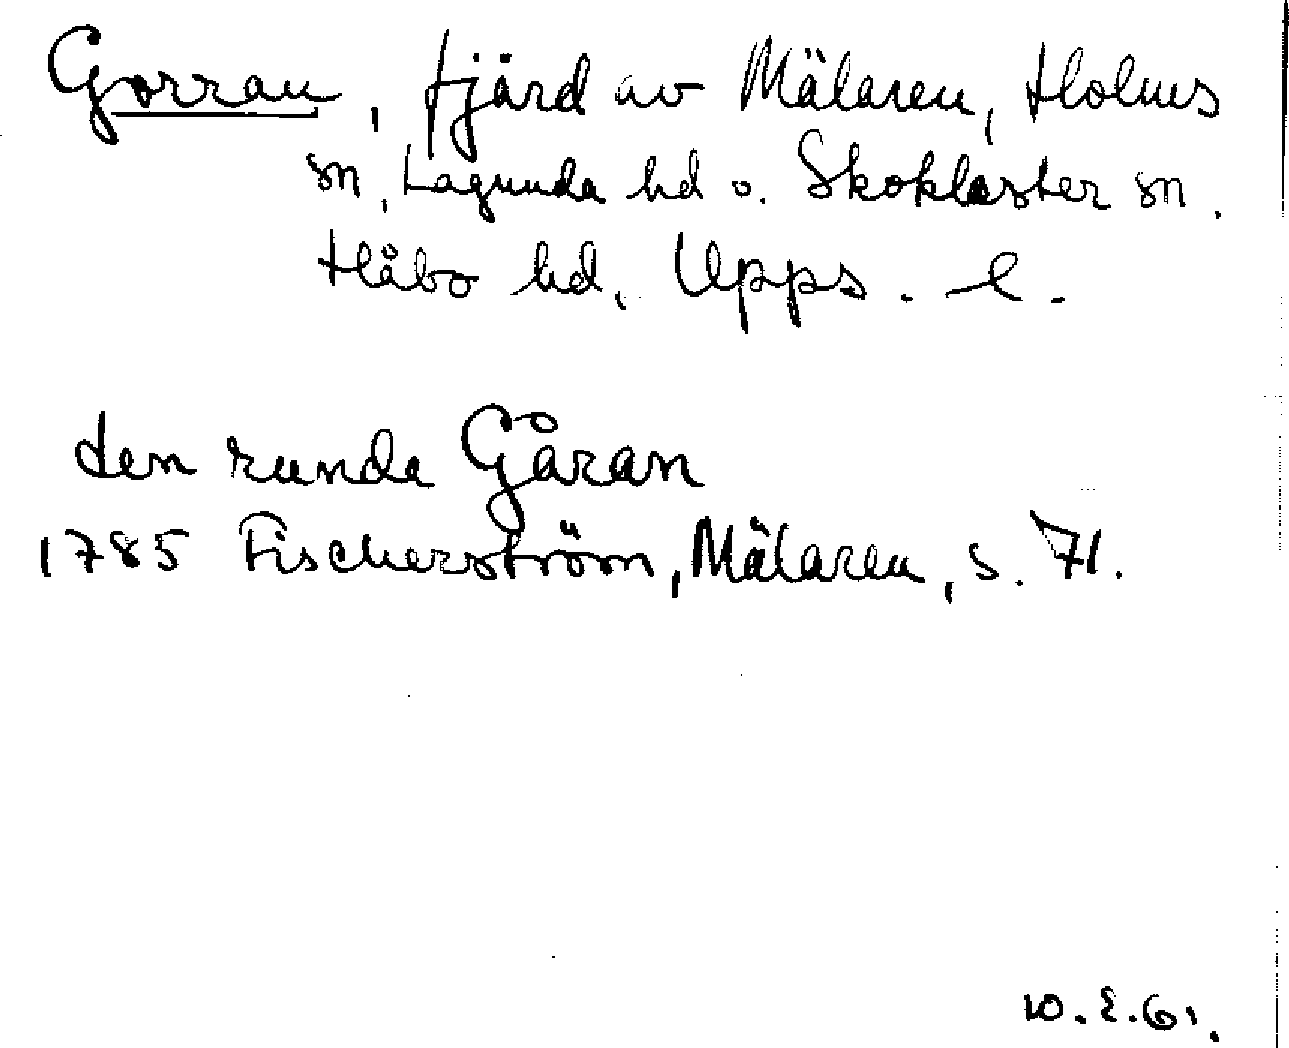 Gorran, fjärd av Mälaren, Holms
sn, Lagunda hd o. Skokloster sn.
Håbo hd, Upps. l.
den runda Gåran
1785 Fischerström, Mälaren, s. 71.
W.E.61.